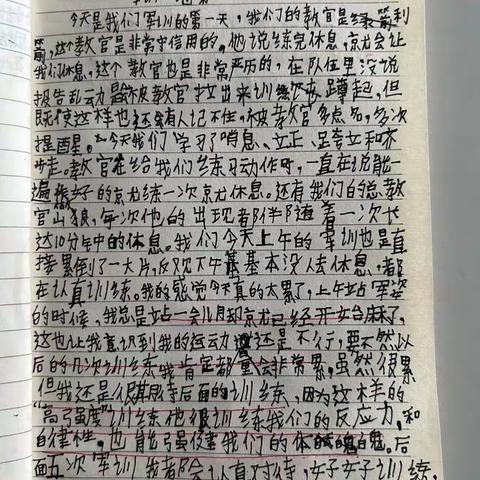 今天是我们军训的第一天，我们的教官是绿箭利
箭，这教官是非常守信用的，他说练完休息，就会让
我们休息，这个教官也是非常严厉的，在队伍里没说
报告乱动是会被教官拉出来训练深蹲起，但
既使这样也还会有人记不住，被教官多点名，多次
提醒。今天我们学习了哨息、立正、跨立和齐
步走。教官在给我们练习动作时，一直在说能一
遍做好的就练一次就休息。还有我们的总教
官山狼，每次他的出现都伴随着一次长
达10分钟的休息。我们今天上午的军训也是直
接累倒了一大片，反观下午基本没人去休息，都
在认真训练。我的感觉今天真的太累了，上午站军姿
的时候，我总是站一会儿脚就已经开始麻了，
这也让我意识到我的运动量还是不行，要不然以
后的几次训练我肯定都会非常累，虽然很累
但我还是很期待后面的训练，因为这样的
“高强度”训练他很训练我们的反应力，和
自律性，也能强健我们的体魄。后
面五次军训我都会认真对待，好好训练，